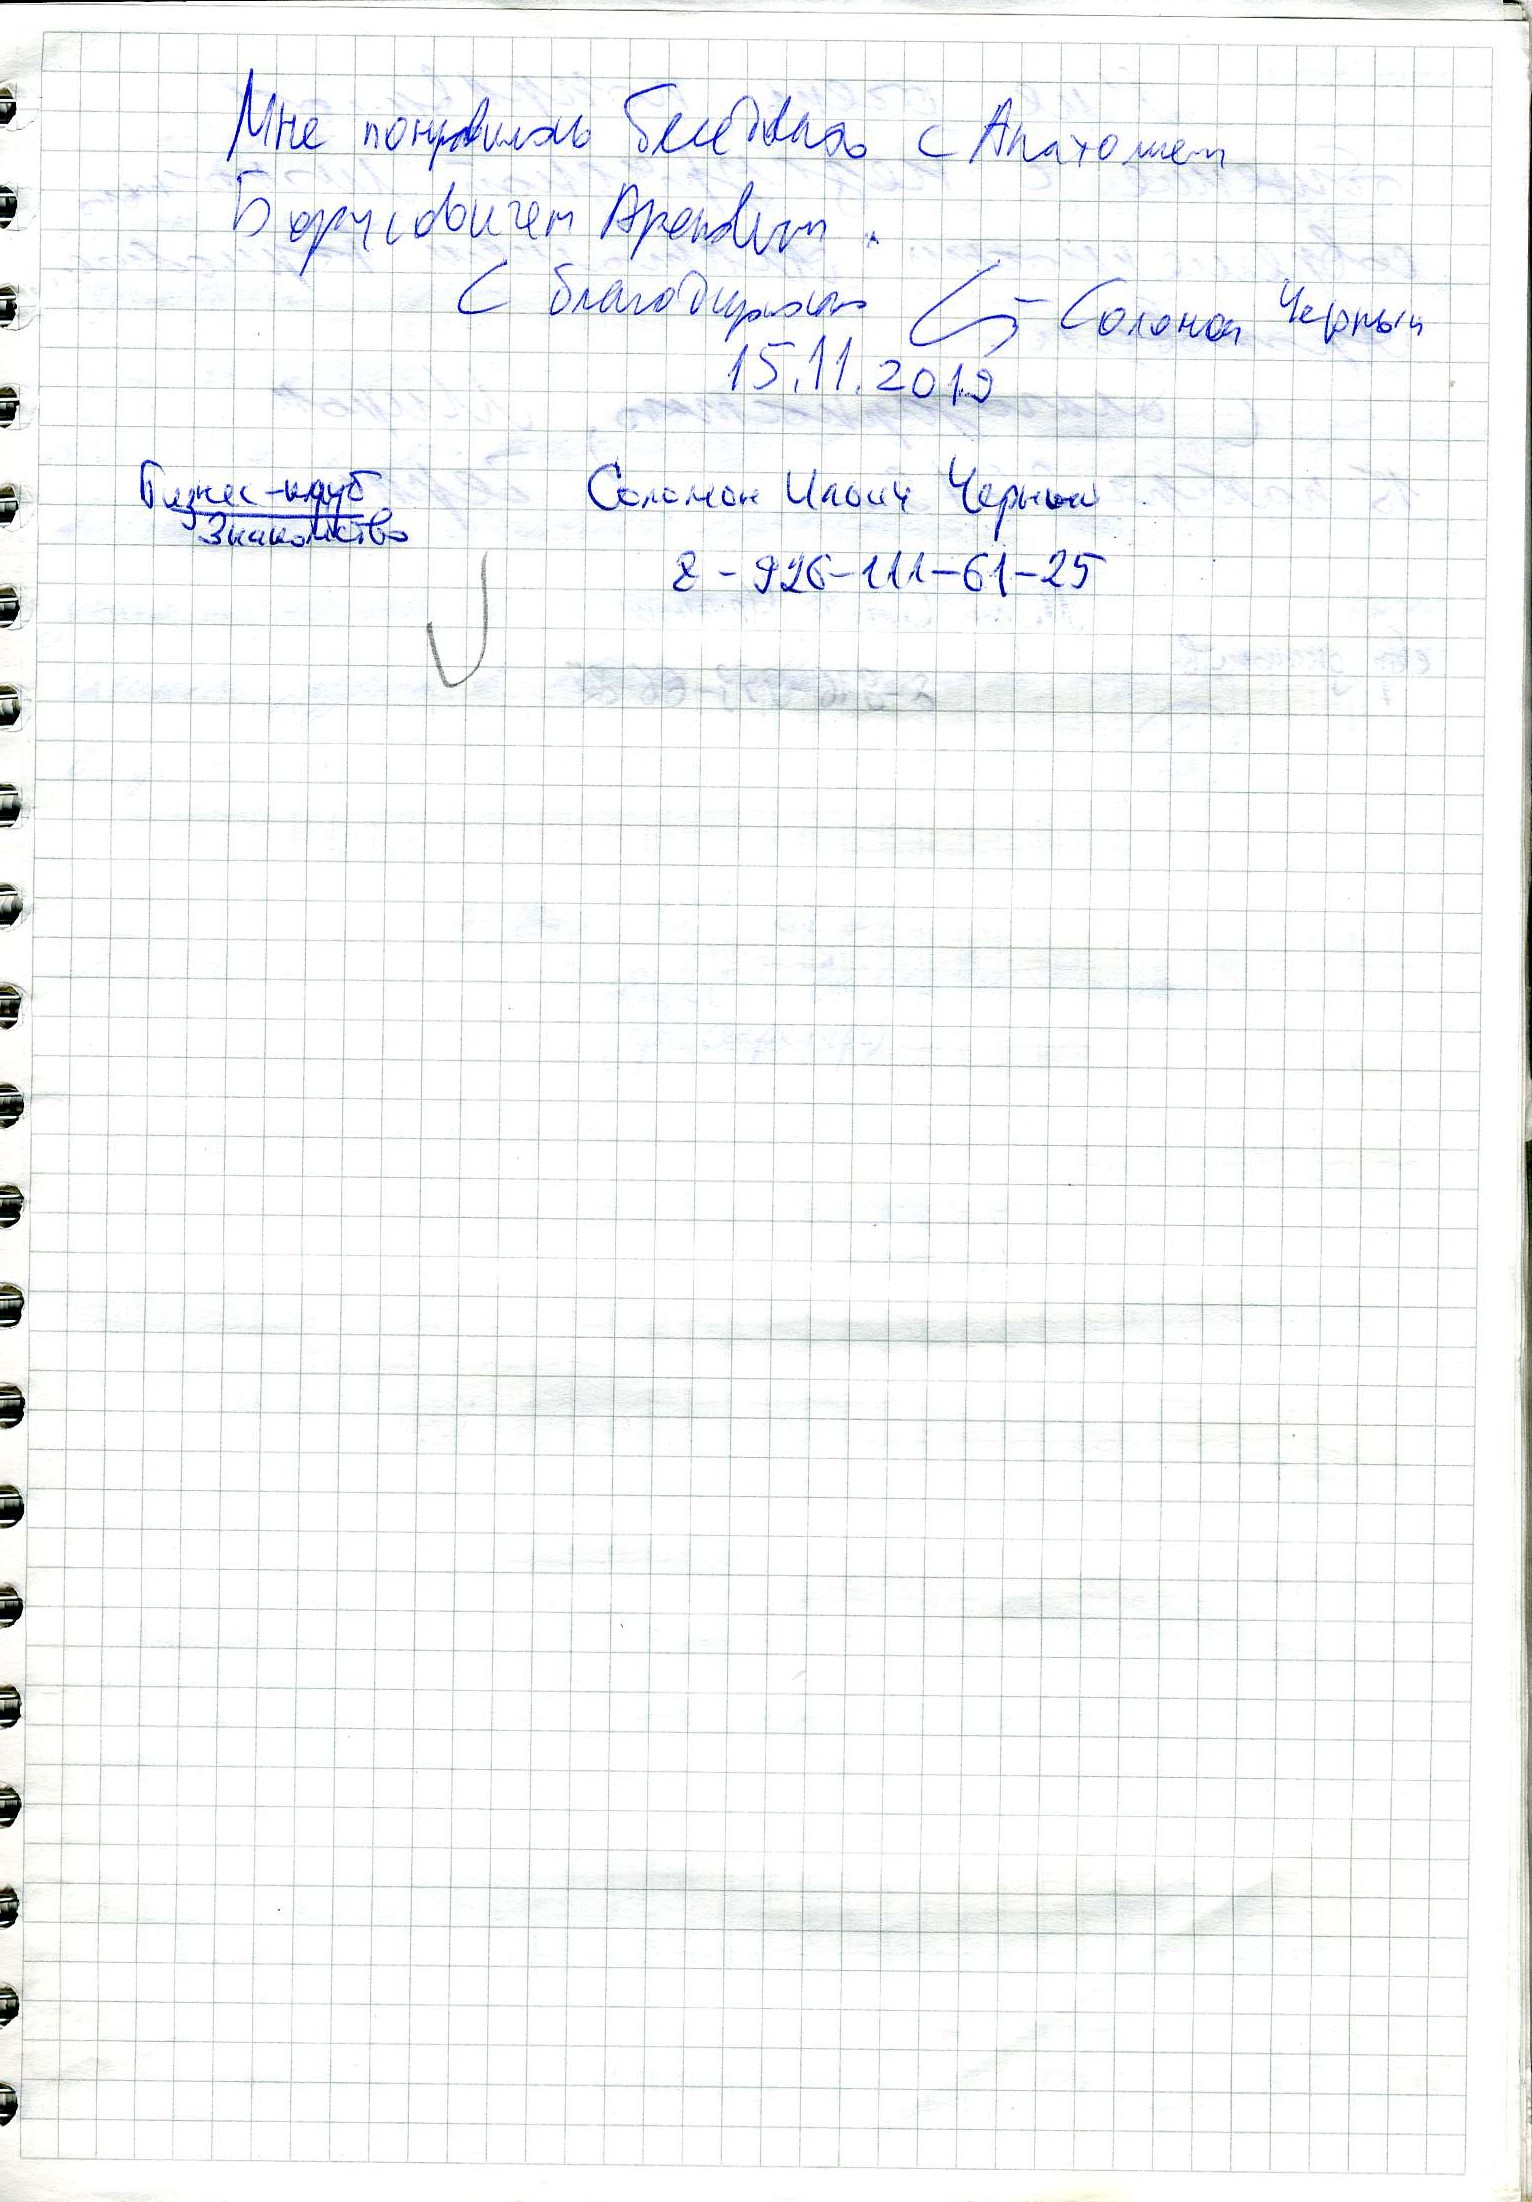 Мне понравилось беседовать с Анатолием
Борисовичем
С благодарностью Соломон Черный
15.11.2019
Бизнес-клуб
Знакомство
Соломон Ильич Черный
8-926-111-61-25